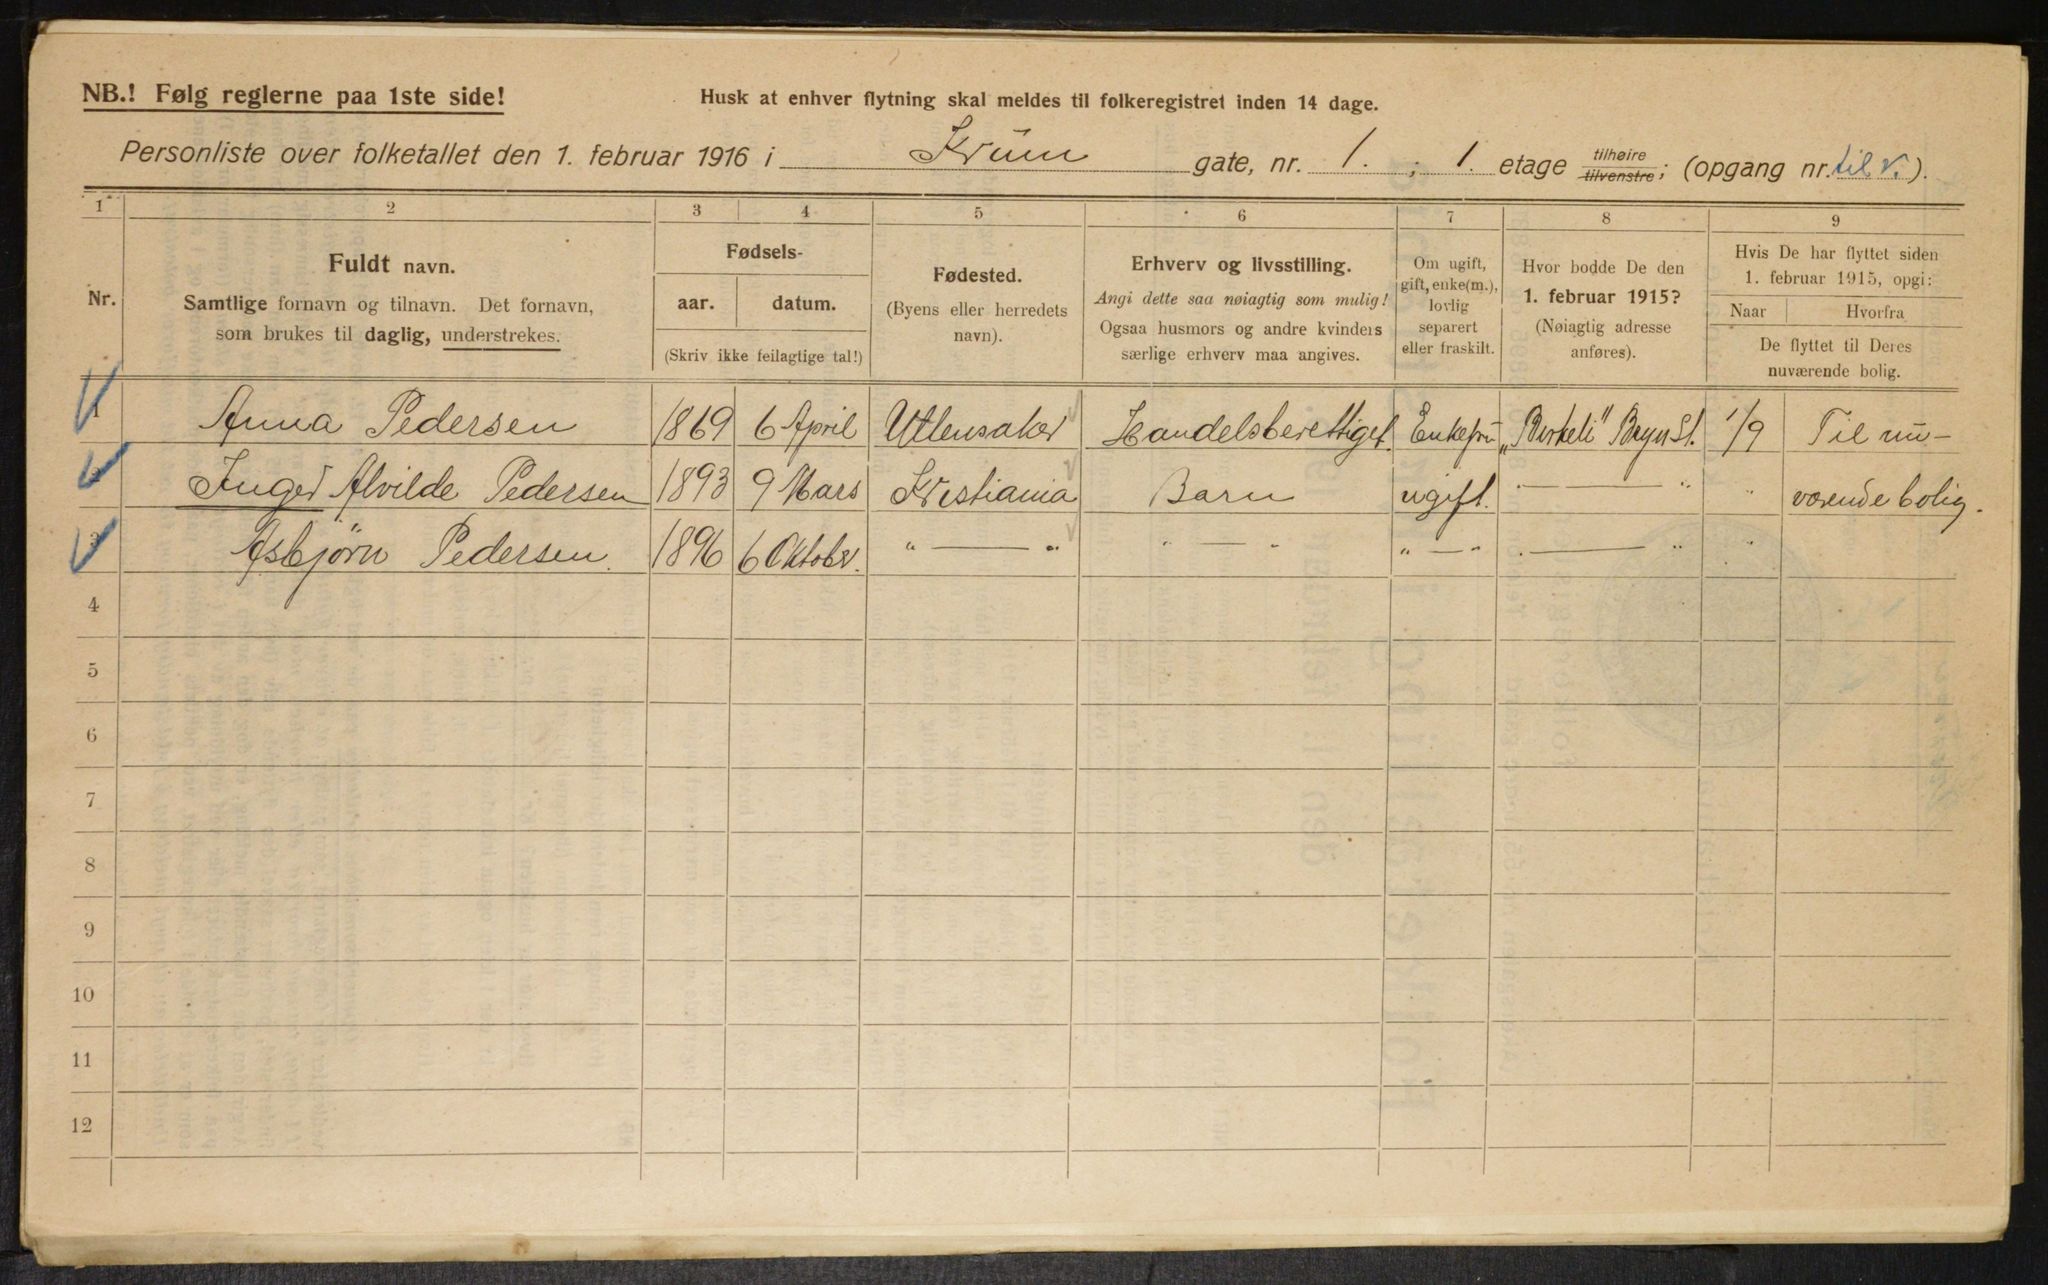 NB.! Følg reglerne paa 1ste side!
Husk at enhver flytning skal meldes til folkeregistret inden 14 dage.
Personliste over folketallet den 1. februar 1916 i Krüm gate, nr. 1. ; 1. etage tilhøire tilvenstre; (opgang nr. til v.).
1 2 3 4 5 6 7 8 9
Nr.
Fuldt navn.
Samtlige fornavn og tilnavn. Det fornavn,
som brukes til daglig, understrekes.
Fødsels-
aar. datum.
(Skriv ikke feilagtige tal!)
Fødested.
(Byens eller herredets
navn).
Erhverv og livsstilling.
Angi dette saa nøiagtig som mulig!
Ogsaa husmors og andre kvinders
særlige erhverv maa angives.
Om ugift,
gift, enke(m.),
lovlig
separert
eller fraskilt.
Hvor bodde De den
1. februar 1915?
(Nøiagtig adresse
anføres).
Hvis De har flyttet siden
1. februar 1915, opgi:
Naar Hvorfra
De flyttet til Deres
nuværende bolig.
1 Anna Pedersen 1869 6 April Ullensaker Handelsberettiget. Enkefru „Birkeli" Bryn St. 1/9 Til nu-
2 Inger Alvilde Pedersen 1893 9 Mars Kristiania Barn ugift. " — " " værende bolig.
3 Asbjörn Pedersen. 1896 6 Oktober. " — " " — " " — " " — " "
4
5
6
7
8
9
10
11
12